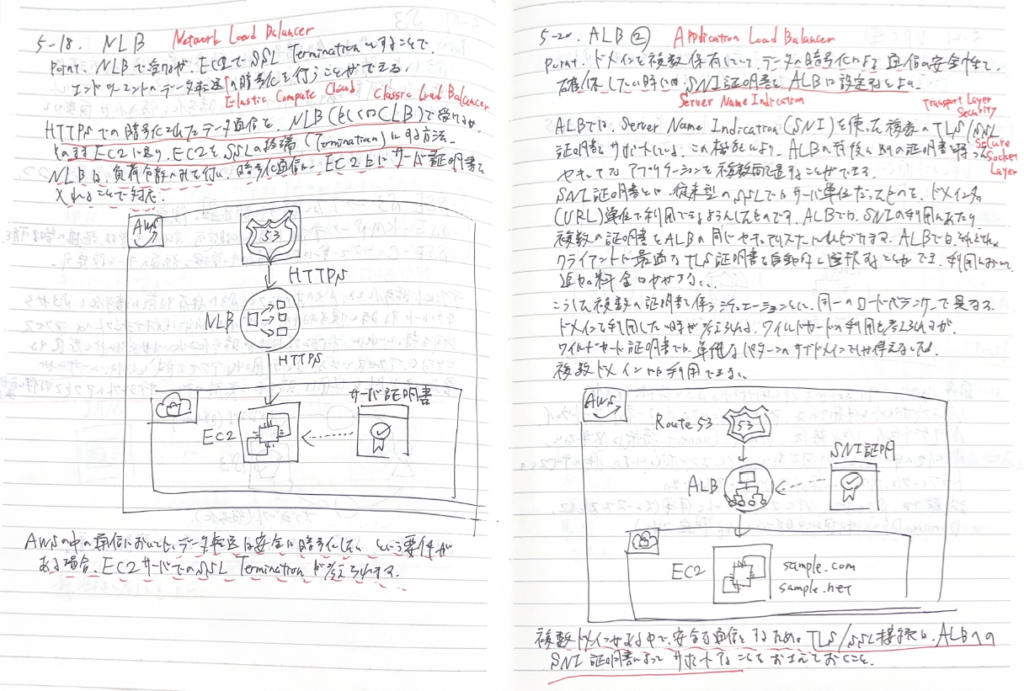 5-18. NLB Network Load Balancer
Point. NLBで受けずに、EC2でSSL Terminationをすることで、
エンドツーエンドへのデータ転送の暗号化を行うことができる。
Elastic Compute Cloud Classic Load Balancer
HTTPSでの暗号化されたデータ通信を、NLB(もしくはCLB)で受けずが、
そのままEC2に送り、EC2をSSLの終端(Termination)にする方法。
NLBは、負荷分散のみで行い、暗号化通信は、EC2上にサーバ証明書を
入れることで対応。
AWS
53
HTTPS
NLB
HTTPS
サーバ証明書
EC2
AWSの中の通信においても、データ転送は安全に暗号化したいという要件が
ある場合、EC2サーバでのSSL Terminationが考えられます。
5-20. ALB ② Application Load Balancer
Point. ドメインを複数保有していて、データの暗号化による通信の安全性を
確保したい時には、SNI証明書をALBに設定するとよい。
Server Name Indication Transport Layer Security
ALBでは、Server Name Indication(SNI)を使った複数のTLS/SSL
Secure Socket Layer
証明書をサポートしている。この機能により、ALBの背後に別の証明書を持った
セキュアなアプリケーションを複数配置することができます。
SNI証明書とは、従来型のSSLではサーバ単位だったものを、ドメイン名
(URL)単位で利用できるようにしたものです。ALBでは、SNIの利用にあたり
複数の証明書をALBの同じセキュアリスナーにひもづけます。ALBでは、それぞれ、
クライアントに最適なTLS証明書を自動的に選択することができ、利用において
追加料金はかからない。
こうした複数の証明書を使うシチュエーションとして、同一のロードバランサーで異なる
ドメインを利用したい時が考えられる。ワイルドカードの利用も考えられるが、
ワイルドカード証明書では、単純なパターンのサブドメインでしか使えないため、
複数ドメインでは利用できない。
AWS
Route 53
53
SNI証明
ALB
EC2
sample.com
sample.net
複数ドメインがある中で、安全な通信をするため、TLS/SSL接続は、ALBへの
SNI証明書によってサポートすることをおさえておくこと。